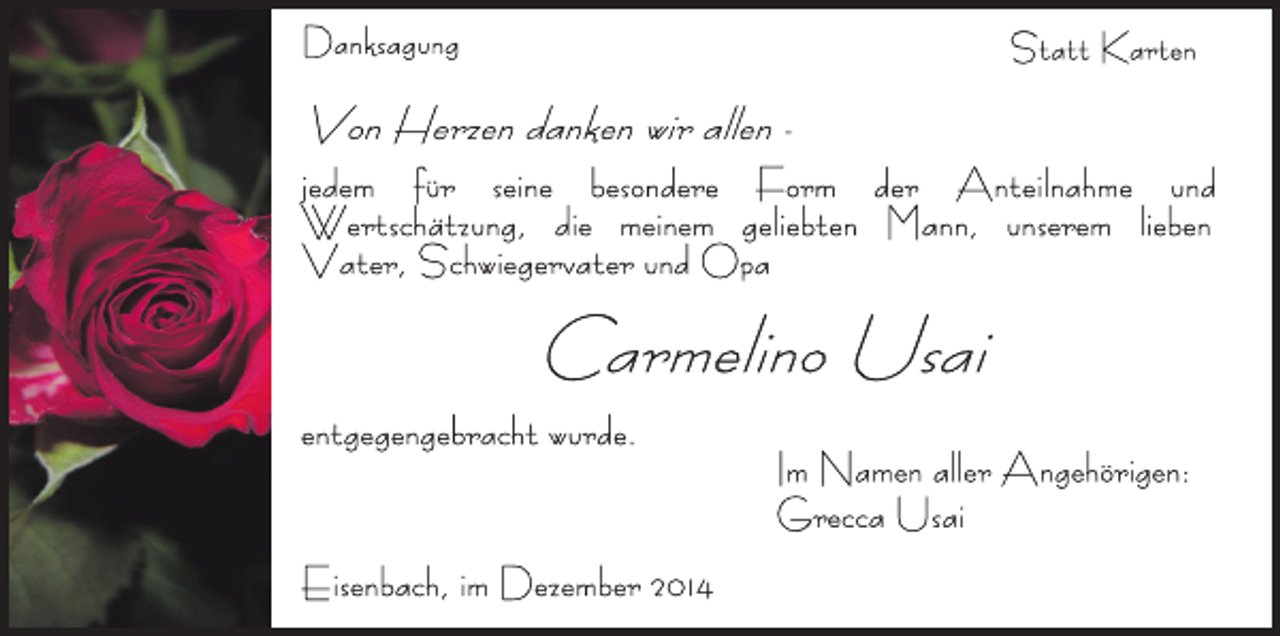 Danksagung
Statt Karten
Von Herzen danken wir allen -
jedem für seine besondere Form der Anteilnahme und
Wertschätzung, die meinem geliebten Mann, unserem lieben
Vater, Schwiegervater und Opa
Carmelino Usai
entgegengebracht wurde.
Im Namen aller Angehörigen:
Grecca Usai
Eisenbach, im Dezember 2014